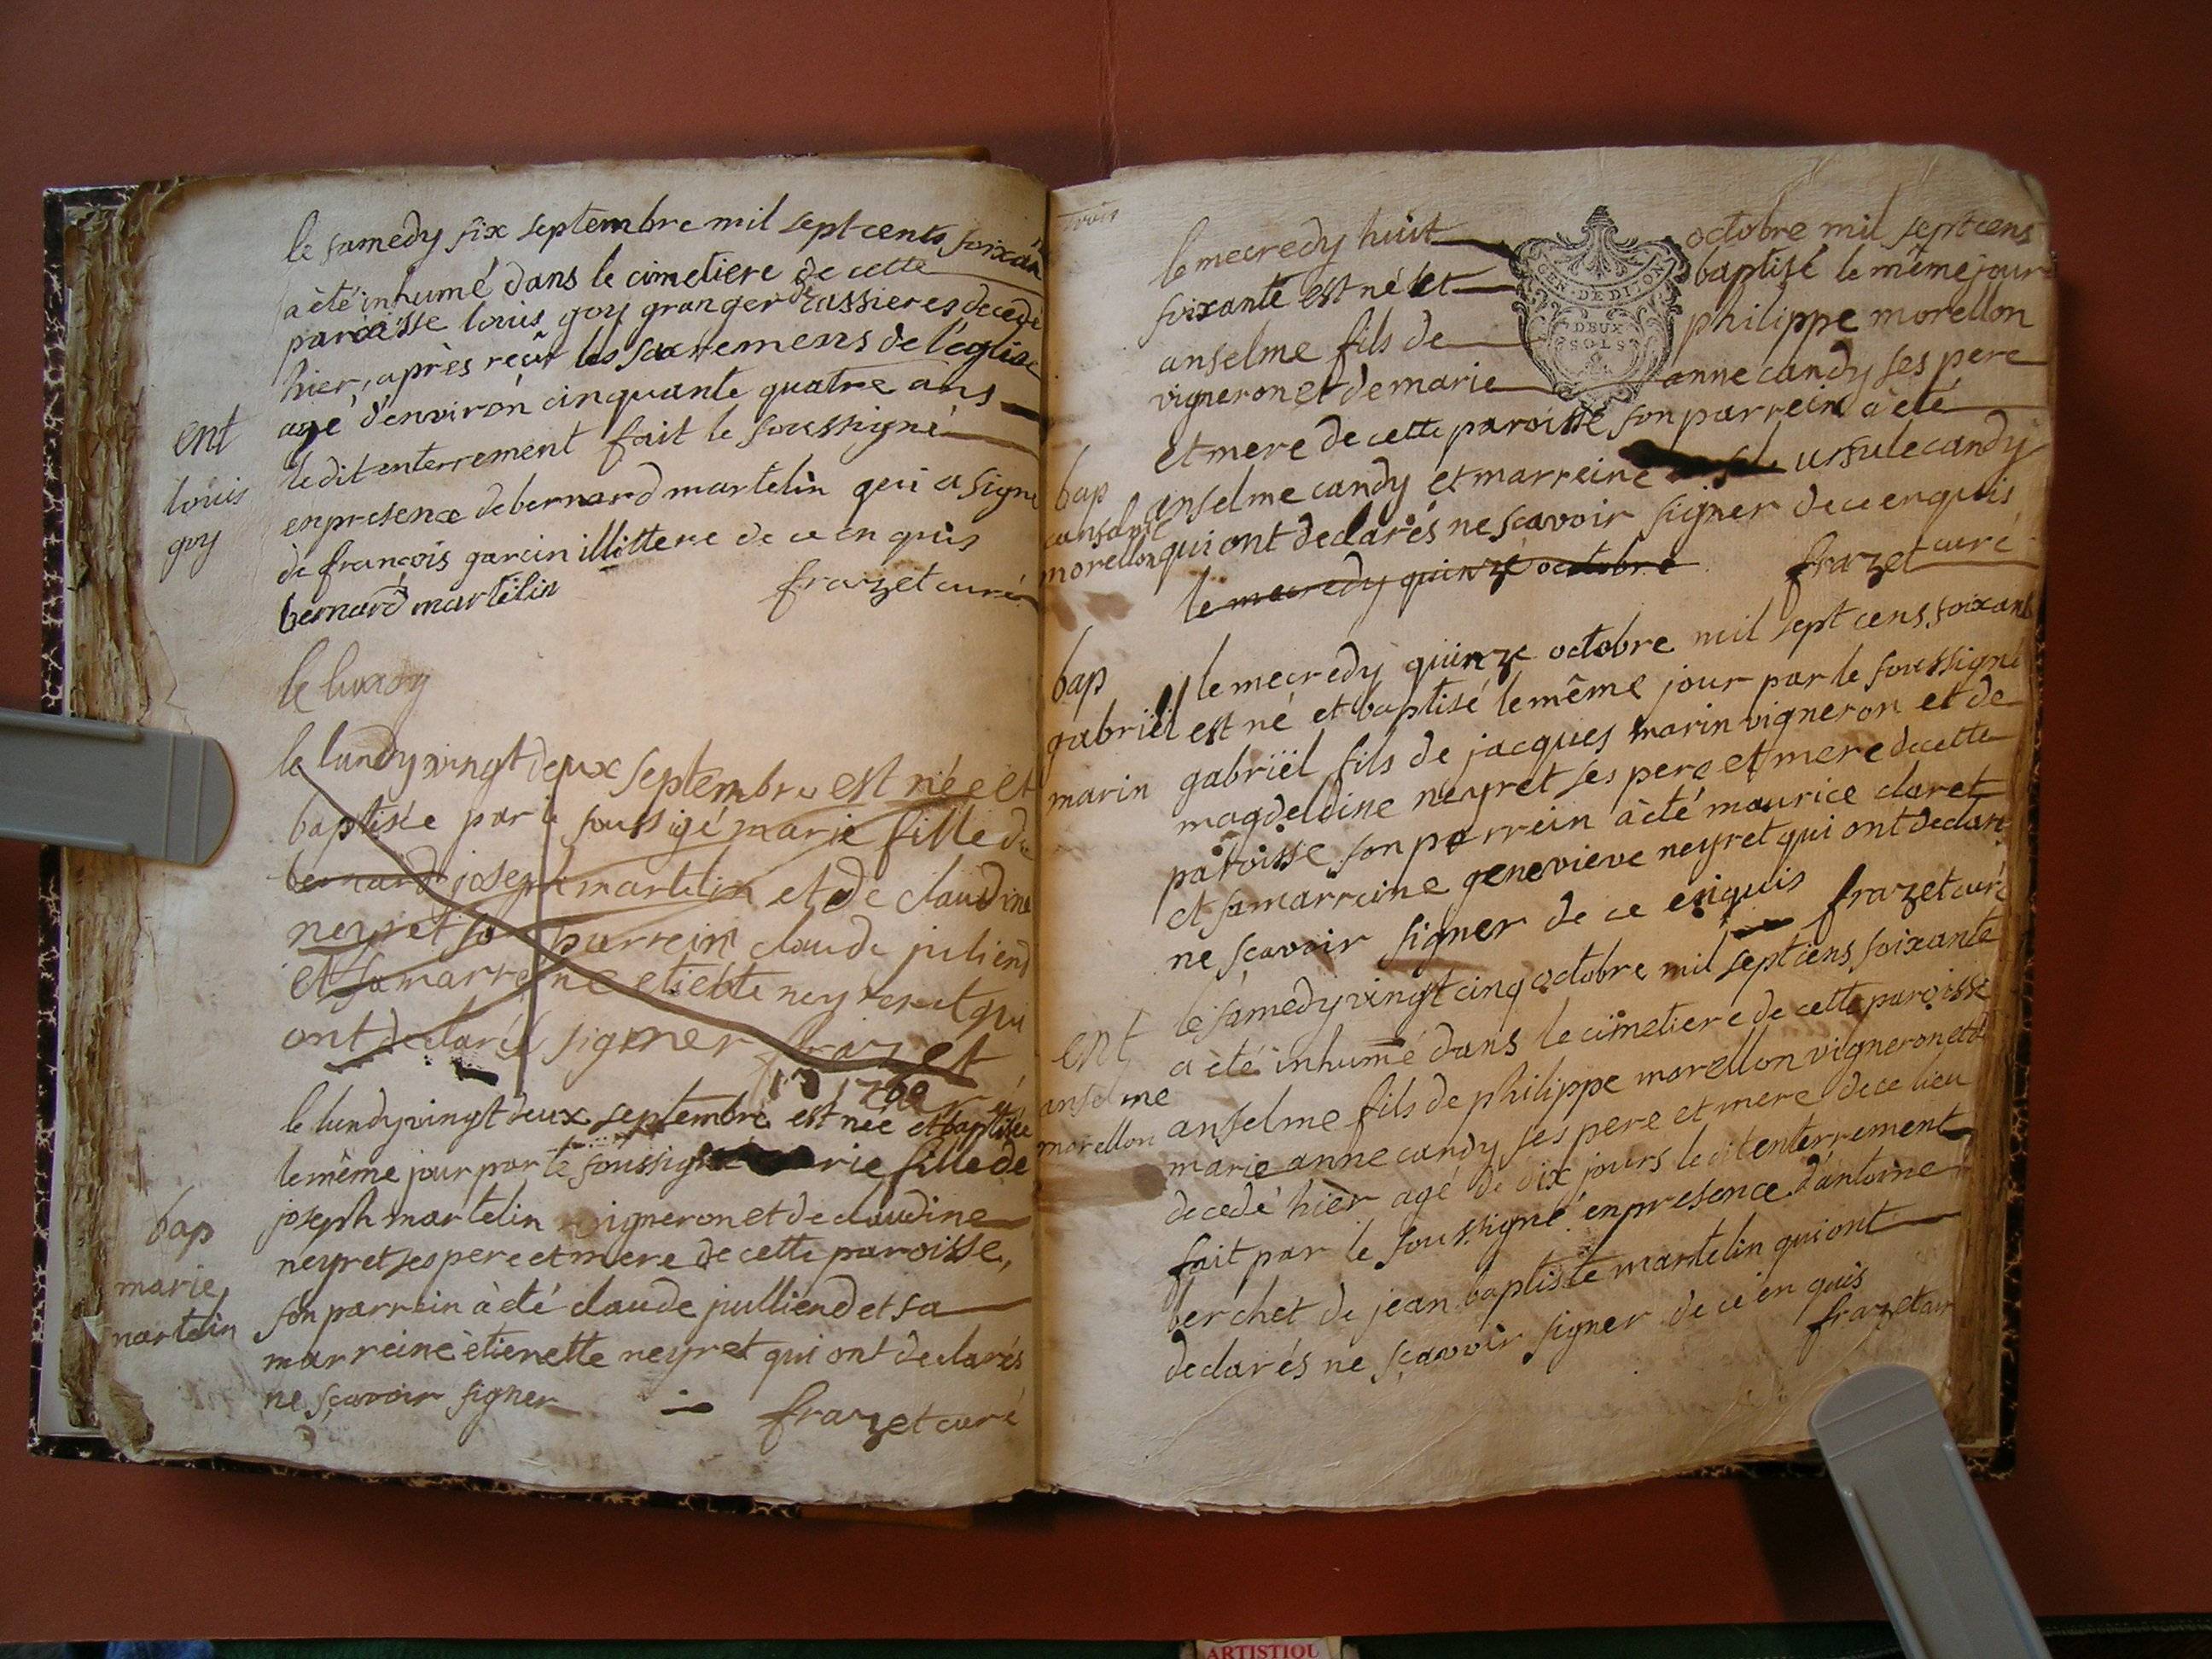 le samedy six septembre mil sept cents soixan
a èté inhumé dans le cimetiere de cette
paroisse louis goy granger de cassieres decedé
hier, après reçût les sacremens de l'eglise
agé d'environ cinquante quatre ans
ledit enterrement fait le soussigné
en presence de bernard martelin qui a signé
de françois garcin illittere de ce en quis
bernard martelin frazet curé
ent
louis
goy
le lundy
le lundy vingt deux septembre est née et
baptisée par le soussigé marie fille de
bernard joseph martelin et de claudine
neyret son parrein claude juliend
et sa marreine etiette neyret qui
ont declarés signer frazet
1760
le lundy vingt deux septembre est née et baptisée
le même jour par le soussigné marie fille de
joseph martelin vigneron et de claudine
neyret ses pere et mere de cette paroisse,
son parrein à été claude julliend et sa
marreine ètienette neyret qui ont declarés
ne sçavoir signer frazet curé
bap
marie
martelin
trois
le mecredy huit octobre mil sept cens
soixante est né et baptisé le même jour
anselme fils de philippe morellon
vigneron et de marie anne candy ses pere
et mere de cette paroisse son parrein à été
anselme candy et marreine ursule candy
qui ont declarés ne scavoir signer de ce enquis
le mecredy quinze octobre frazet curé
GEN. DE DIJON
DEUX
SOLS
bap
anselme
morellon
le mecredy quinze octobre mil sept cens soixante
est né et baptisé le même jour par le soussigné
gabriël fils de jacques marin vigneron et de
magdeldine neyret ses pere et mere de cette
paroisse son parrein à été maurice claret
et sa marreine genevieve neyret qui ont declaré
ne sçavoir signer de ce enquis frazet curé
bap
gabriël
marin
le samedy vingt cinq octobre mil sept cens soixante
a été inhumé dans le cimetiere de cette paroisse
anselme fils de philippe morellon vigneron et de
marie anne candy ses pere et mere de ce lieu
decedé hier agé de dix jours ledit enterrement
fait par le soussigné en presence d'antoine
berchet de jean baptiste martelin qui ont
declarés ne sçavoir signer de ce en quis
frazet cur
ent
anselme
morellon
ARTISTIQU